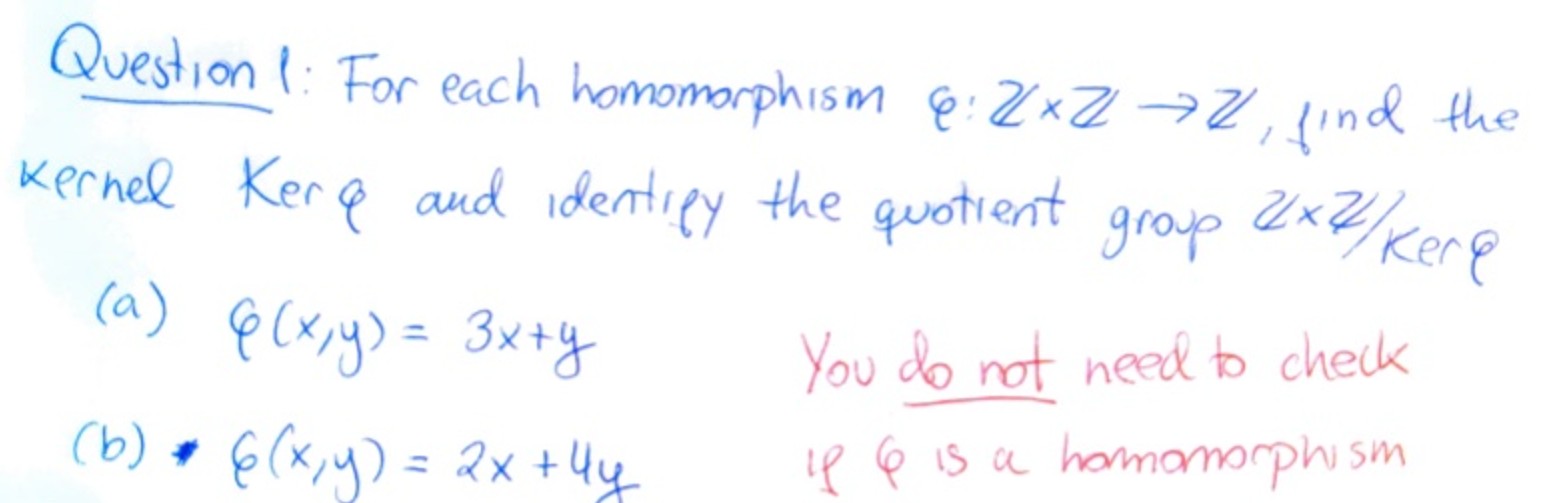 Question 1: For each homomorphism φ: ℤ×ℤ → ℤ, find the
kernel Ker φ and identify the quotient group ℤ×ℤ/Ker φ
(a) φ(x,y) = 3x+y
You do not need to check
(b) φ(x,y) = 2x+4y
if φ is a homomorphism